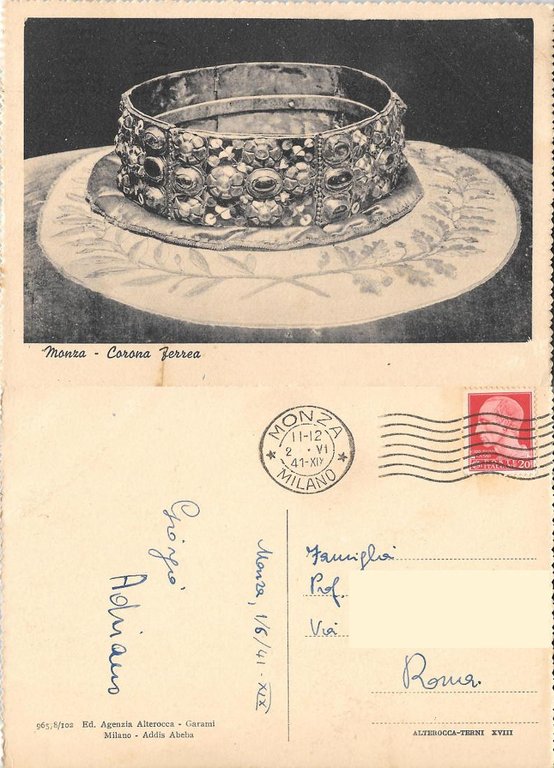 Monza - Corona Ferrea
MONZA
11-12
2 · VI
41-XIX
MILANO
20
Giorgio
Adriano
Monza, 1/6/41 - XIX
Famiglia
Prof.
Via
Roma
965,8/102 Ed. Agenzia Alterocca - Garami
Milano - Addis Abeba
ALTEROCCA-TERNI XVIII